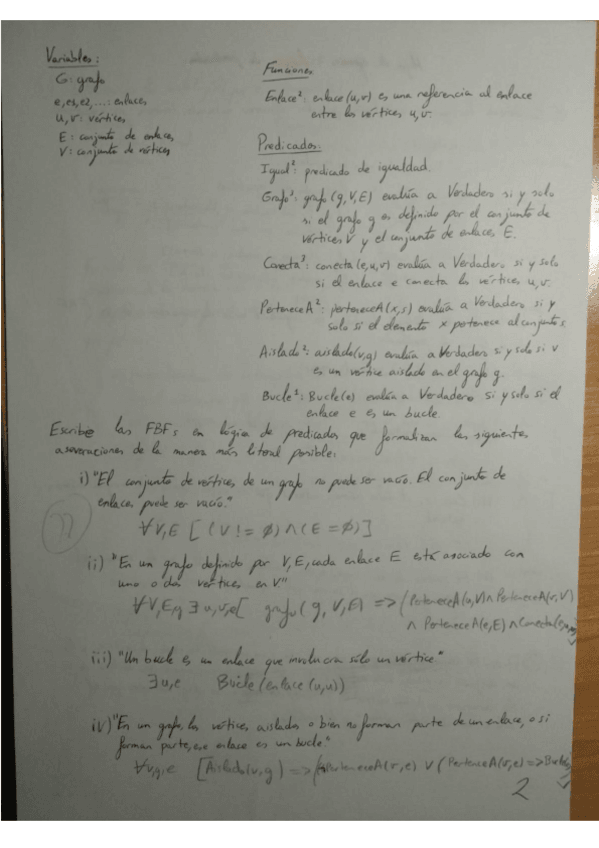 Variables:
G: grafo
e, e1, e2, ...: enlaces
u, v: vértices
E: conjunto de enlaces
V: conjunto de vértices
Funciones
Enlace²: enlace(u,v) es una referencia al enlace
entre los vértices u, v.
Predicados:
Igual²: predicado de igualdad.
Grafo³: grafo(g,V,E) evalúa a Verdadero si y solo
si el grafo g es definido por el conjunto de
vértices V y el conjunto de enlaces E.
Conecta³: conecta(e,u,v) evalúa a Verdadero si y solo
si el enlace e conecta los vértices u, v.
PerteneceA²: perteneceA(x,s) evalúa a Verdadero si y
solo si el elemento x pertenece al conjunto s.
Aislado²: aislado(v,g) evalúa a Verdadero si y solo si v
es un vértice aislado en el grafo g.
Bucle¹: Bucle(e) evalúa a Verdadero si y solo si el
enlace e es un bucle.
Escribe las FBFs en lógica de predicados que formalizan las siguientes
aseveraciones de la manera más literal posible:
i) "El conjunto de vértices de un grafo no puede ser vacío. El conjunto de
enlaces puede ser vacío."
∀V,E [(V != ∅) ∧ (E = ∅)]
ii) "En un grafo definido por V, E, cada enlace E está asociado con
uno o dos vértices en V"
∀V,E,g ∃u,v,e[ grafo(g,V,E) => (PerteneceA(u,V) ∧ PerteneceA(v,V)
∧ PerteneceA(e,E) ∧ Conecta(e,u,v)
iii) "Un bucle es un enlace que involucra sólo un vértice."
∃u,e Bucle(enlace(u,u))
iv) "En un grafo, los vértices aislados o bien no forman parte de un enlace, o si
forman parte, ese enlace es un bucle."
∀v,g,e [Aislado(v,g) => PerteneceA(v,e) ∨ (PerteneceA(v,e) => Bucle
2